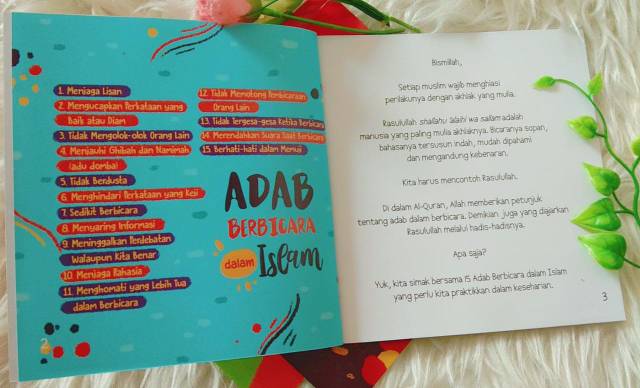 1. Menjaga Lisan
2. Mengucapkan Perkataan yang
Baik atau Diam
3. Tidak Mengolok-olok Orang Lain
4. Menjauhi Ghibah dan Namimah
(adu domba)
5. Tidak Berdusta
6. Menghindari Perkataan yang Keji
7. Sedikit Berbicara
8. Menyaring Informasi
9. Meninggalkan Perdebatan
Walaupun Kita Benar
10. Menjaga Rahasia
11. Menghormati yang Lebih Tua
dalam Berbicara
12. Tidak Memotong Pembicaraan
Orang Lain
13. Tidak Tergesa-gesa Ketika Berbicara
14. Merendahkan Suara Saat Berbicara
15. Berhati-hati dalam Memuji
ADAB
BERBICARA
dalam Islam
2
Bismillah,
Setiap muslim wajib menghiasi
perilakunya dengan akhlak yang mulia.
Rasulullah shallahu 'alaihi wa sallam adalah
manusia yang paling mulia akhlaknya. Bicaranya sopan,
bahasanya tersusun indah, mudah dipahami
dan mengandung kebenaran.
Kita harus mencontoh Rasulullah.
Di dalam Al-Quran, Allah memberikan petunjuk
tentang adab dalam berbicara. Demikian juga yang diajarkan
Rasulullah melalui hadis-hadisnya.
Apa saja?
Yuk, kita simak bersama 15 Adab Berbicara dalam Islam
yang perlu kita praktikkan dalam keseharian.
3